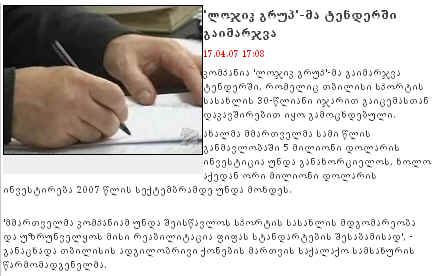 'ლოჯიკ გრუპ'-მა ტენდერში
გაიმარჯვა
17.04.07 17:08
კომპანია 'ლოჯიკ გრუპ'-მა გაიმარჯვა
ტენდერში, რომელიც თბილისი სპორტის
სასახლის 30-წლიანი იჯარით გაიცემასთან
დაკავშირებით იყო გამოცხდებული.
ახალმა მმართველმა სამი წლის
განმავლობაში 5 მილიონი დოლარის
ინვესტიცია უნდა განახორციელოს, ხოლო
აქედან ორი მილიონი დოლარის
ინვესტირება 2007 წლის სექტემბრამდე უნდა მოხდეს.
'მმართველმა კომპანიამ უნდა შეისწავლოს სპორტის სასახლის მდგომარეობა
და უზრუნველყოს მისი რეაბილიტაცია ფიფას სტანდარტების შესაბამისად', -
განაცხადა თბილისის ადგილობრივი ქონების მართვის საქალაქო სამსახურის
წარმომადგენელმა.